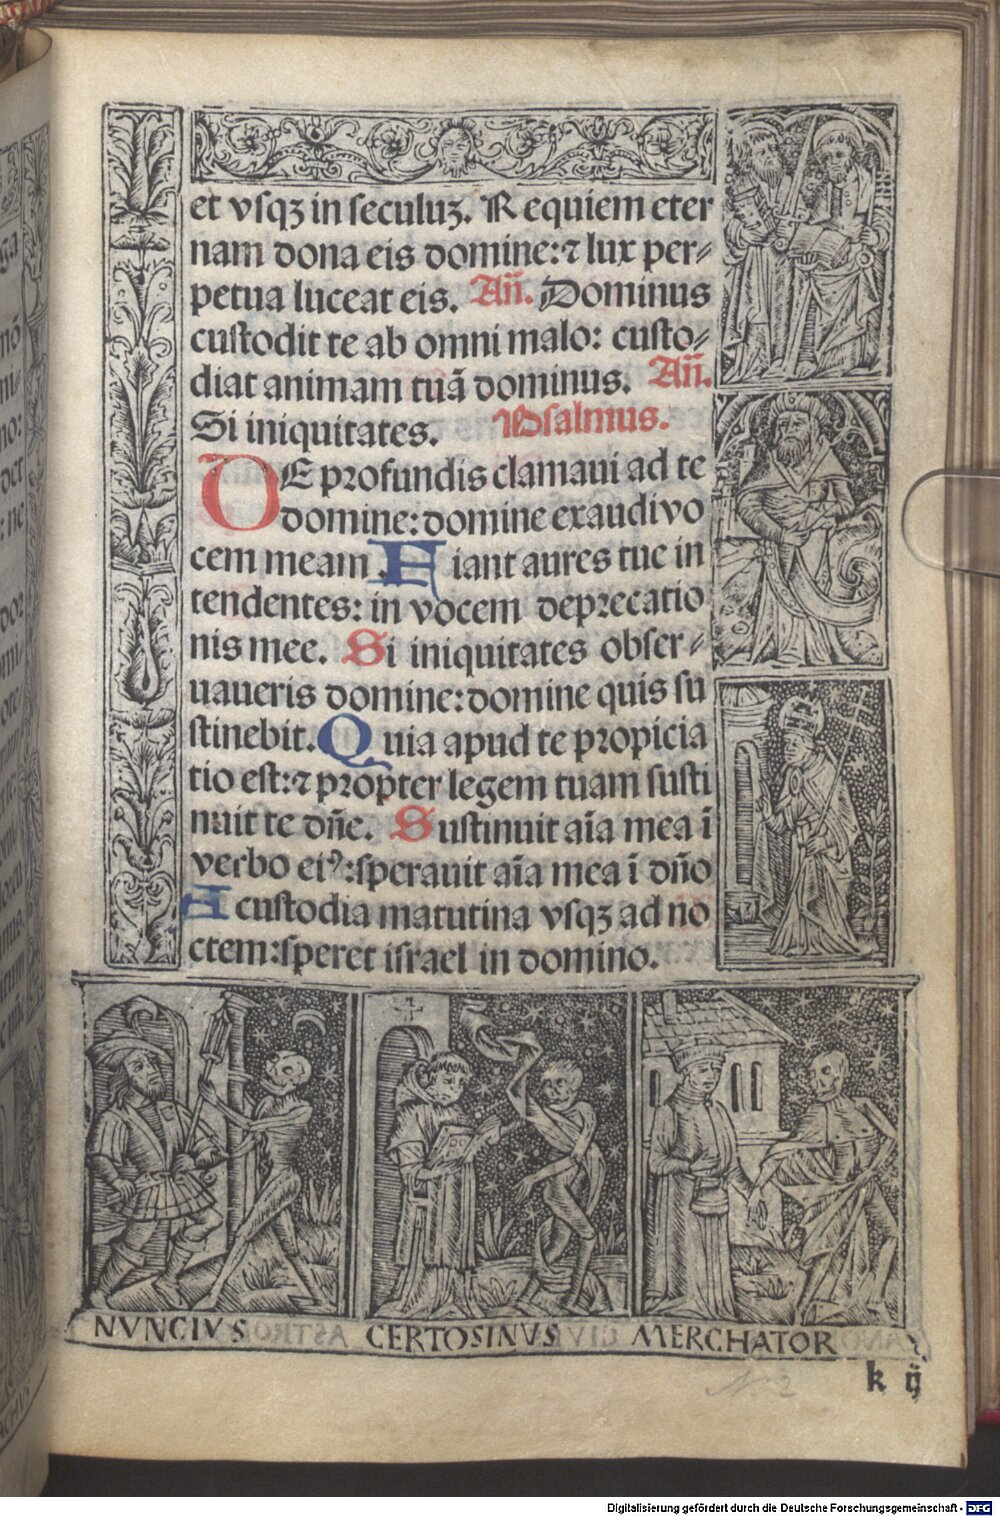 et vsqꝫ in seculuꝫ. Requiem eter
nam dona eis domine: ⁊ lux per⸗
petua luceat eis. Añ. Dominus
custodit te ab omni malo: custo⸗
diat animam tuā dominus. Añ.
Si iniquitates. Psalmus.
DE profundis clamaui ad te
domine: domine exaudi vo
cem meam. Fiant aures tue in
tendentes: in vocem deprecatio
nis mee. Si iniquitates obser⸗
uaueris domine: domine quis su
stinebit. Quia apud te propicia
tio est: ⁊ propter legem tuam susti
nuit te dñe. Sustinuit aīa mea ī
verbo eiꝰ: sperauit aīa mea ī dño
A custodia matutina vsqꝫ ad no
ctem: speret israel in domino.
NVNCIVS CERTOSINVS MERCHATOR
k ij
Digitalisierung gefördert durch die Deutsche Forschungsgemeinschaft - DFG